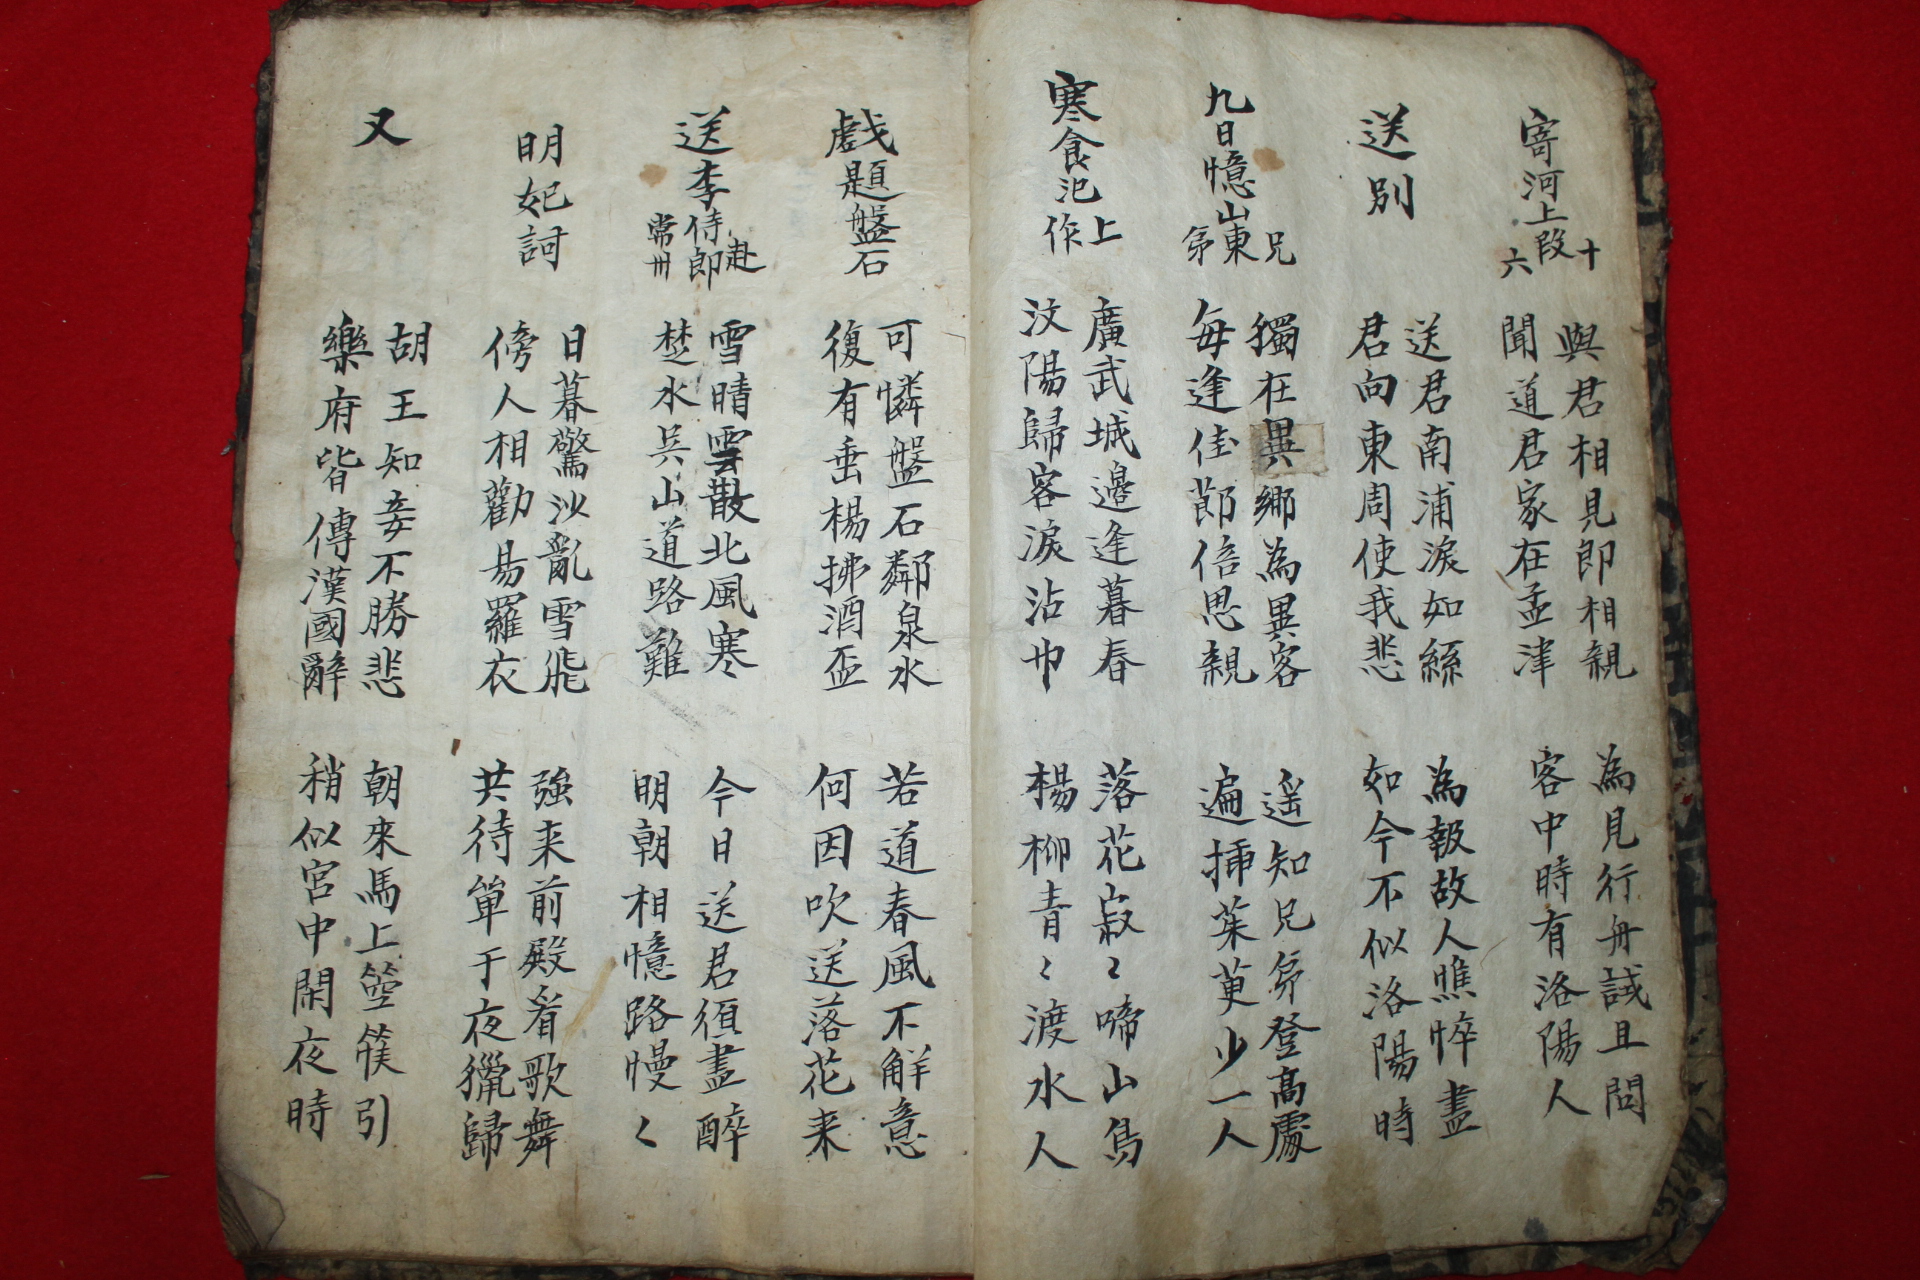 寄河上段十六
與君相見即相親
聞道君家在孟津
為見行舟試且問
客中時有洛陽人
送別
送君南浦淚如絲
君向東周使我悲
為報故人憔悴盡
如今不似洛陽時
九日憶山東兄弟
獨在異鄉為異客
每逢佳節倍思親
遥知兄弟登高處
遍揷茱萸少一人
寒食汜上作
廣武城邊逢暮春
汶陽歸客淚沾巾
落花寂〻啼山鳥
楊柳青〻渡水人
戲題盤石
可憐盤石鄰泉水
復有垂楊拂酒盃
若道春風不解意
何因吹送落花来
送李侍郎赴常州
雪晴雲散北風寒
楚水吳山道路難
今日送君須盡醉
明朝相憶路慢〻
明妃詞
日暮驚沙亂雪飛
傍人相勸易羅衣
強来前殿看歌舞
共待單于夜獵歸
又
胡王知妾不勝悲
樂府皆傳漢國辭
朝來馬上箜篌引
稍似宮中閑夜時